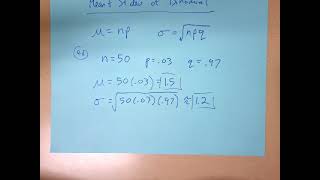 Mean & Stdev of Binomial
μ = np σ = √npq
n=50 p=.03 q=.97
μ = 50(.03) = 1.5
σ = √50(.03)(.97) ≈ 1.2